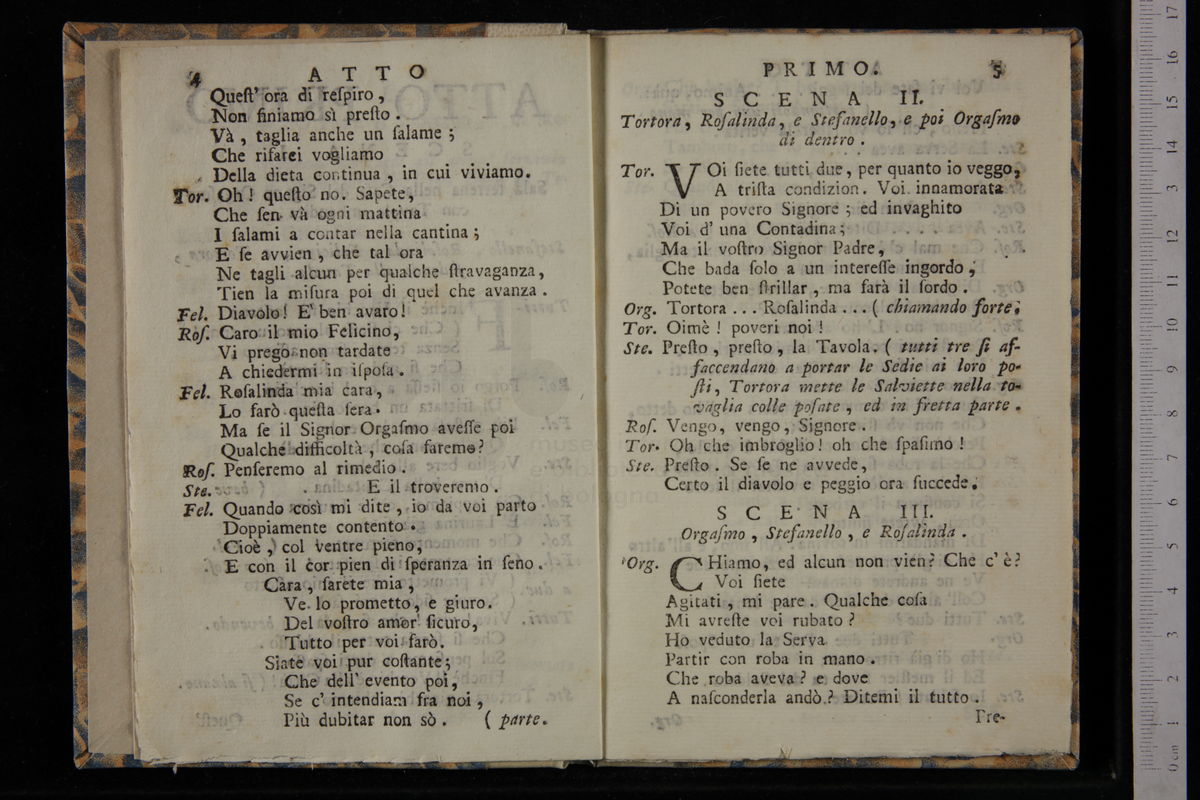 4 ATTO
Queſt' ora di reſpiro,
Non finiamo sì preſto.
Và, taglia anche un ſalame;
Che rifarei vogliamo
Della dieta continua, in cui viviamo.
Tor. Oh! queſto no. Sapete,
Che ſen và ogni mattina
I ſalami a contar nella cantina;
E ſe avvien, che tal ora
Ne tagli alcun per qualche ſtravaganza,
Tien la miſura poi di quel che avanza.
Fel. Diavolo! E' ben avaro!
Roſ. Caro il mio Felicino,
Vi prego non tardate
A chiedermi in iſpoſa.
Fel. Roſalinda mia cara,
Lo farò queſta ſera.
Ma ſe il Signor Orgaſmo aveſſe poi
Qualche difficoltà, coſa faremo?
Roſ. Penſeremo al rimedio.
Ste. E il troveremo.
Fel. Quando così mi dite, io da voi parto
Doppiamente contento.
Cioè, col ventre pieno,
E con il cor pien di ſperanza in ſeno.
Cara, ſarete mia,
Ve lo prometto, e giuro.
Del voſtro amor ſicuro,
Tutto per voi farò.
Siate voi pur coſtante;
Che dell' evento poi,
Se c' intendiam fra noi,
Più dubitar non sò. (parte.
PRIMO. 5
SCENA II.
Tortora, Roſalinda, e Stefanello, e poi Orgaſmo
di dentro.
Tor. VOi ſiete tutti due, per quanto io veggo,
A triſta condizion. Voi innamorata
Di un povero Signore; ed invaghito
Voi d' una Contadina;
Ma il voſtro Signor Padre,
Che bada ſolo a un intereſſe ingordo,
Potete ben ſtrillar, ma farà il ſordo.
Org. Tortora... Roſalinda... (chiamando forte;
Tor. Oimè! poveri noi!
Ste. Preſto, preſto, la Tavola. (tutti tre ſi af-
faccendano a portar le Sedie ai loro po-
ſti, Tortora mette le Salviette nella to-
vaglia colle poſate, ed in fretta parte.
Roſ. Vengo, vengo, Signore.
Tor. Oh che imbroglio! oh che ſpaſimo!
Ste. Preſto. Se ſe ne avvede,
Certo il diavolo e peggio ora ſuccede.
SCENA III.
Orgaſmo, Stefanello, e Roſalinda.
Org. CHiamo, ed alcun non vien? Che c' è?
Voi ſiete
Agitati, mi pare. Qualche coſa
Mi avreſte voi rubato?
Ho veduto la Serva
Partir con roba in mano.
Che roba aveva? e dove
A naſconderla andò? Ditemi il tutto.
Pre-